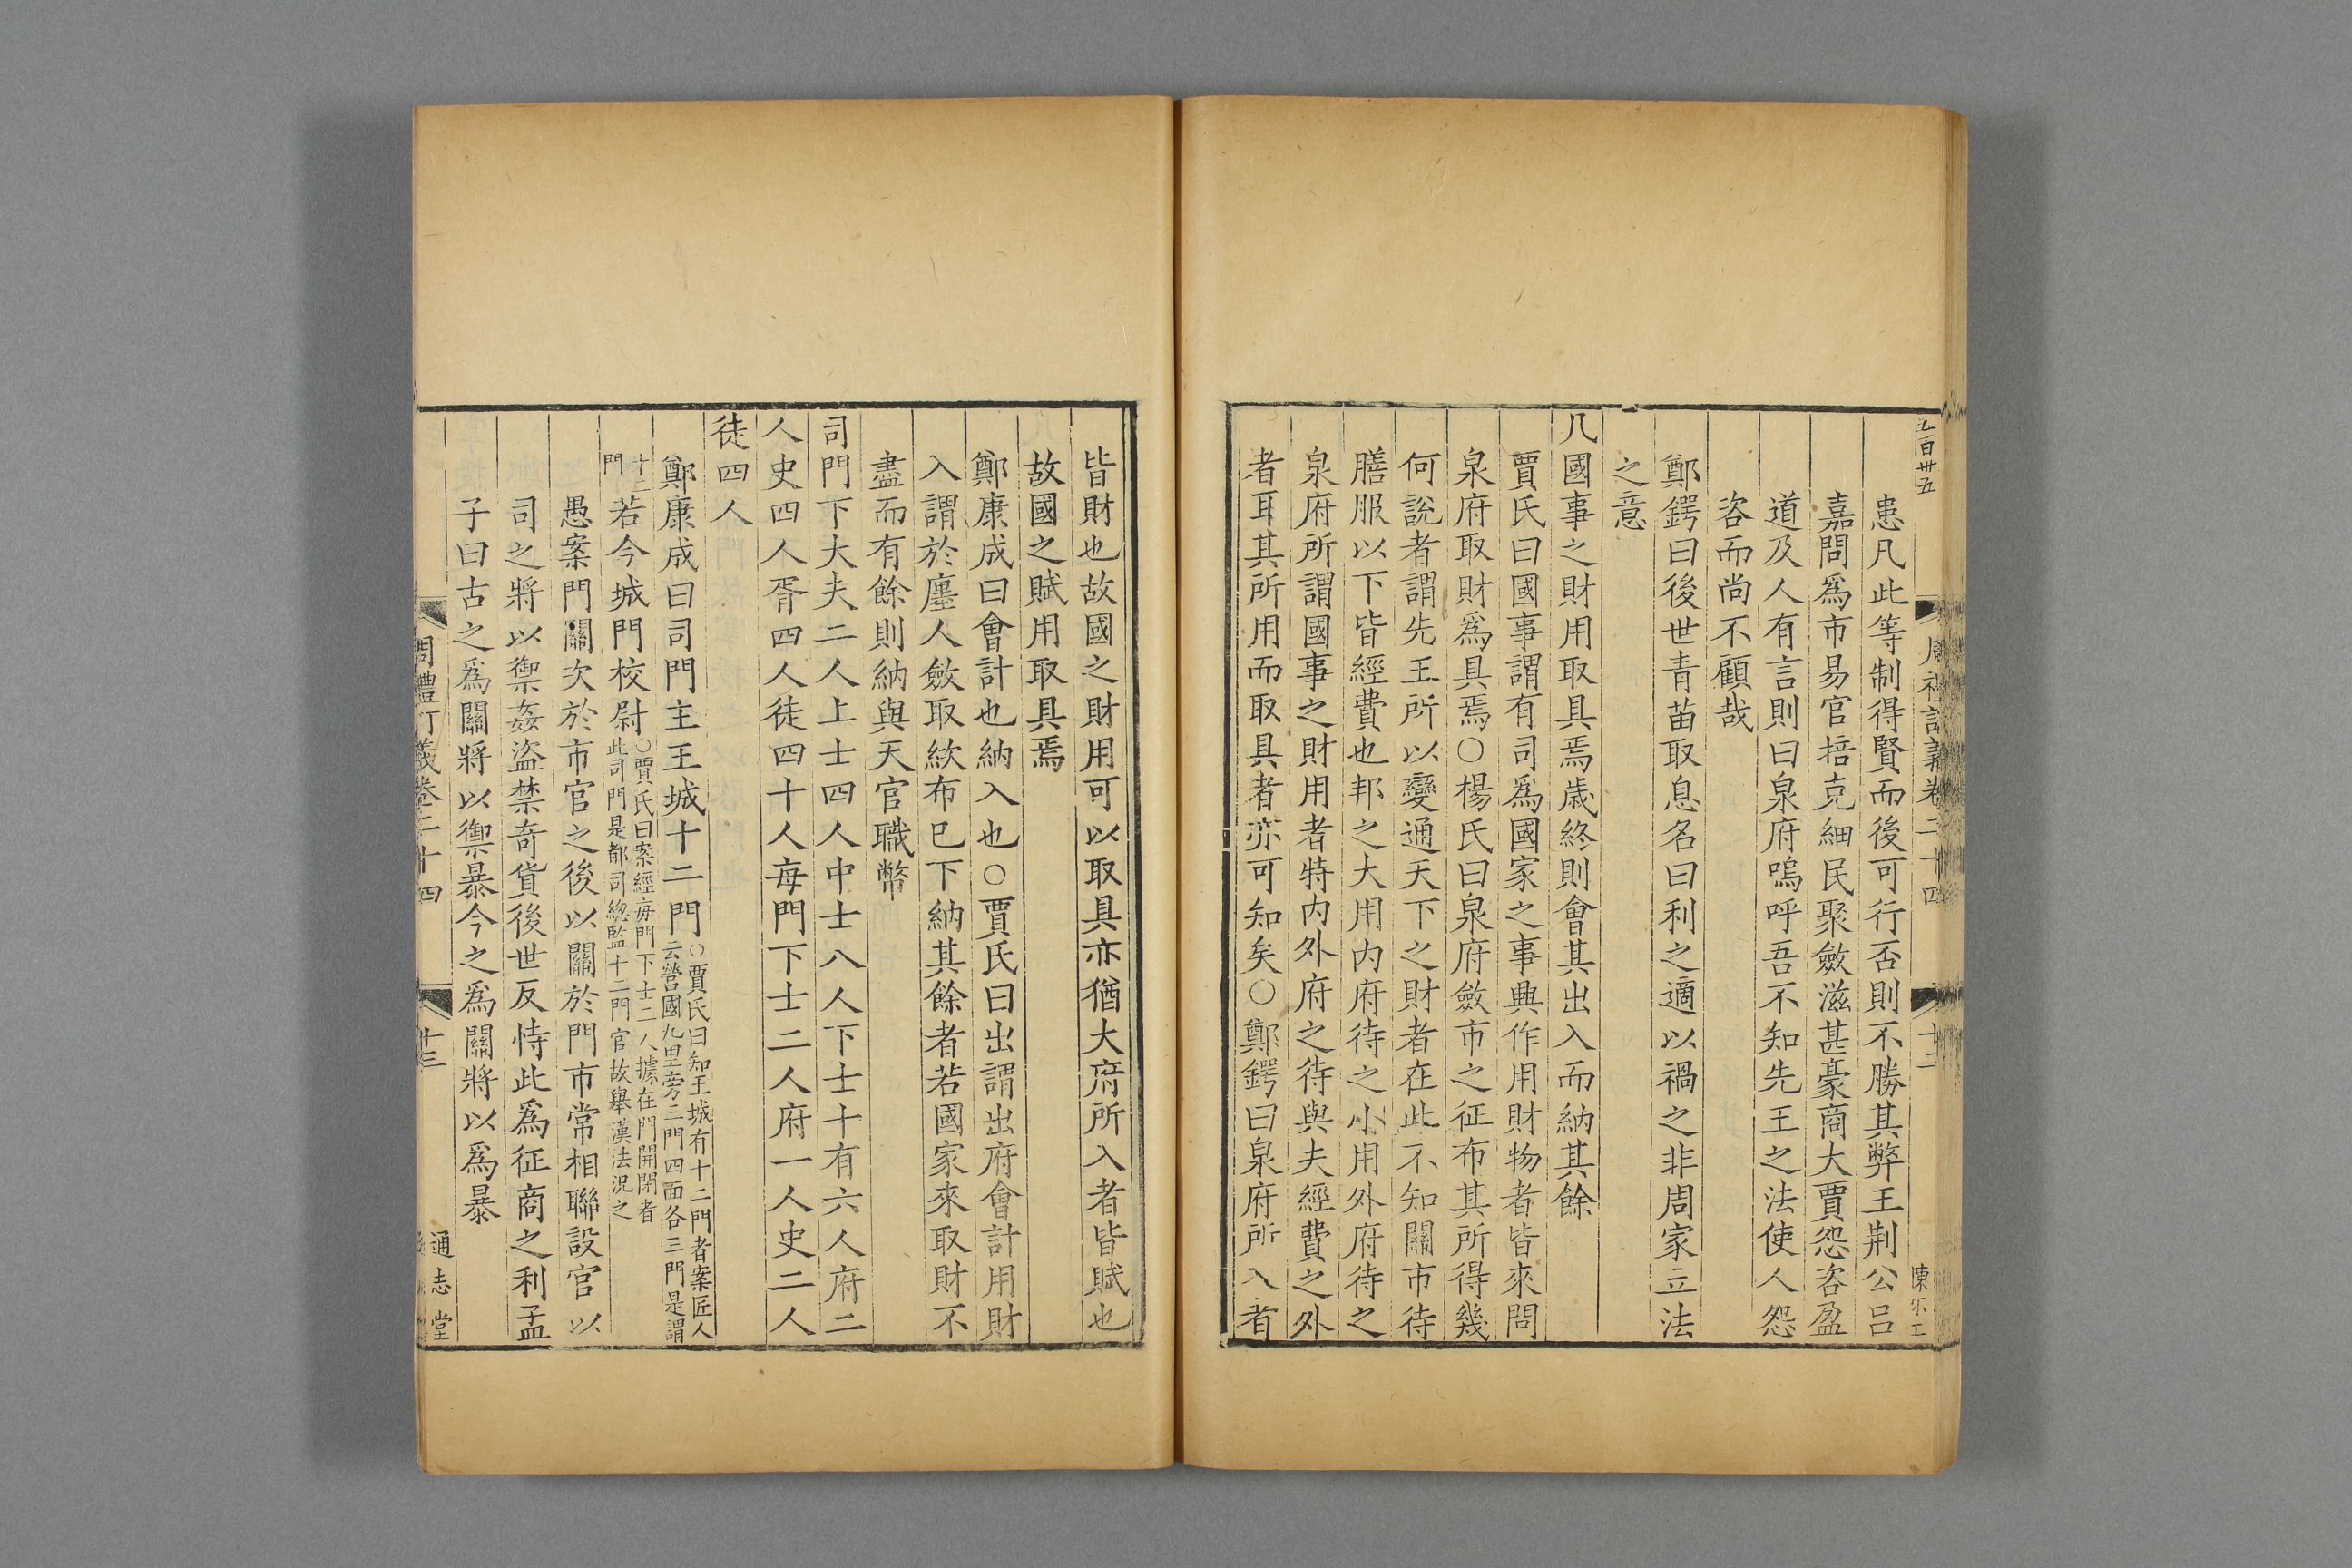 患凡此等制得賢而後可行否則不勝其弊王荆公呂
嘉問爲市易官掊克細民聚斂滋甚豪商大賈怨咨盈
道及人有言則曰泉府嗚呼吾不知先王之法使人怨
咨而尚不顧哉
鄭鍔曰後世青苗取息名曰利之適以禍之非周家立法
之意
凡國事之財用取具焉歲終則會其出入而納其餘
賈氏曰國事謂有司爲國家之事興作用財物者皆來問
泉府取財爲具焉○楊氏曰泉府斂市之征布其所得幾
何說者謂先王所以變通天下之財者在此不知關市待
膳服以下皆經費也邦之大用内府待之小用外府待之
泉府所謂國事之財用者特内外府之待與夫經費之外
者耳其所用而取具者亦可知矣○鄭鍔曰泉府所入者
皆財也故國之財用可以取具亦猶大府所入者皆賦也
故國之賦用取具焉
鄭康成曰會計也納入也○賈氏曰出謂出府會計用財
入謂於廛人斂取絘布已下納其餘者若國家來取財不
盡而有餘則納與天官職幣
司門下大夫二人上士四人中士八人下士十有六人府二
人史四人胥四人徒四十人每門下士二人府一人史二人
徒四人
鄭康成曰司門主王城十二門○賈氏曰知王城有十二門者案匠人云營國九里旁三門四面各三門是謂
十二門若今城門校尉○賈氏曰案經每門下士二人據在門開閉者此司門是都司總監十二門官故舉漢法況之
愚案門關次於市官之後以關於門市常相聯設官以
司之將以禦姦盜禁奇貨後世反恃此爲征商之利孟
子曰古之爲關將以禦暴今之爲關將以爲暴
周禮訂義卷二十四
十三
通志堂